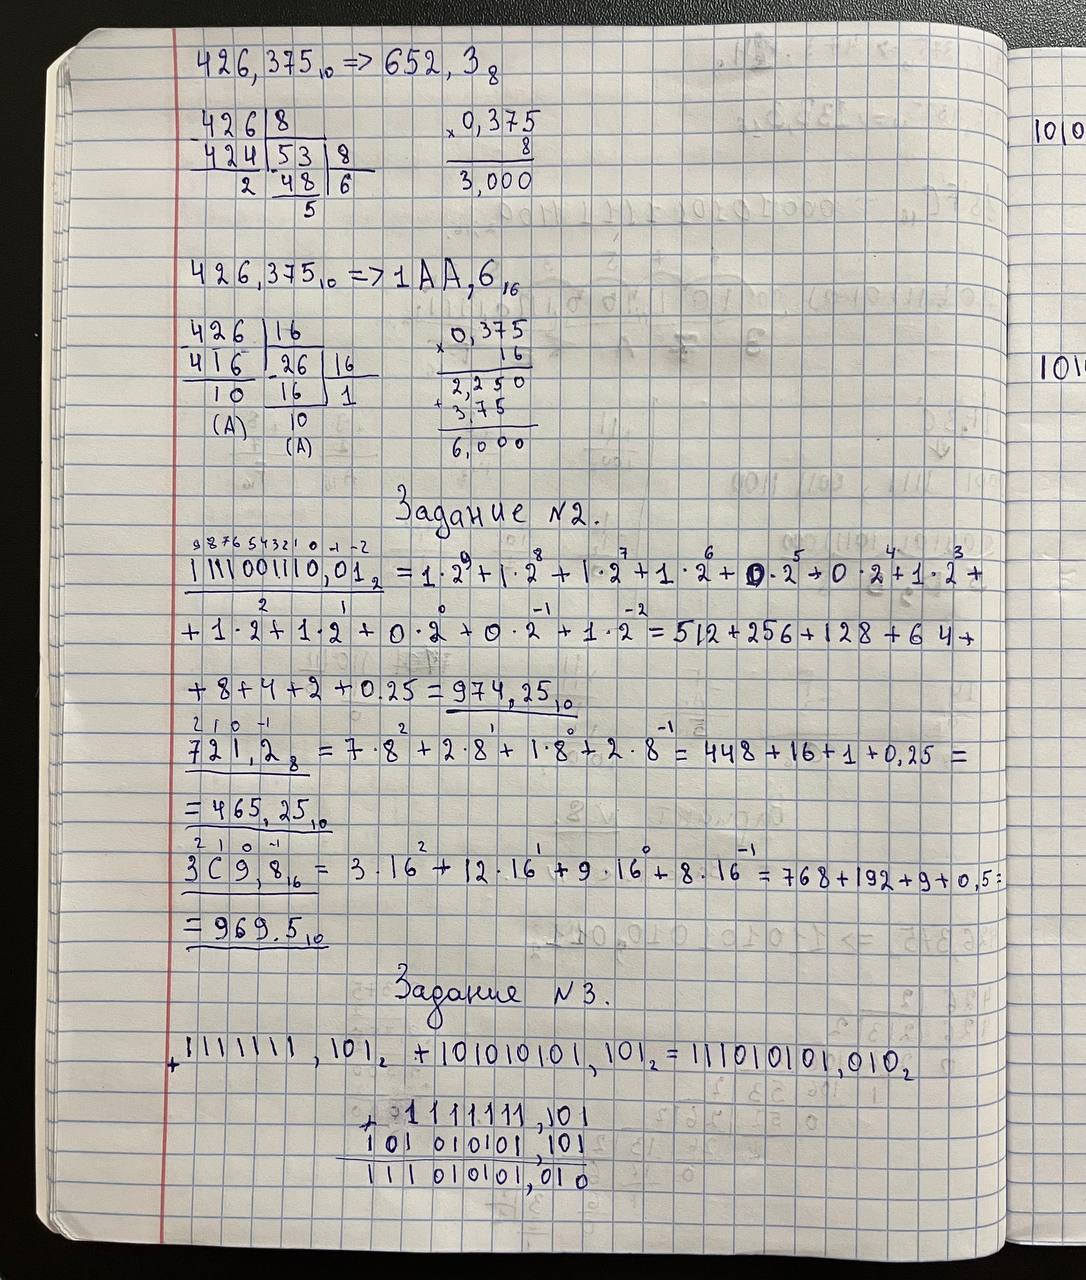 426,375₁₀ => 652,3₈
426 | 8
424 | 53 | 8
2 48 6
5
× 0,375
8
3,000
426,375₁₀ => 1AA,6₁₆
426 | 16
416 | 26 | 16
10 16 1
(A) 10
(A)
× 0,375
16
2,250
+ 3,75
6,000
Задание №2.
9 8 7 6 5 4 3 2 1 0 -1 -2
1111001110,01₂ = 1·2⁹ + 1·2⁸ + 1·2⁷ + 1·2⁶ + 0·2⁵ + 0·2⁴ + 1·2³ +
+ 1·2² + 1·2¹ + 0·2⁰ + 0·2⁻¹ + 1·2⁻² = 512 + 256 + 128 + 64 +
+ 8 + 4 + 2 + 0.25 = 974,25₁₀
2 1 0 -1
721,2₈ = 7·8² + 2·8¹ + 1·8⁰ + 2·8⁻¹ = 448 + 16 + 1 + 0,25 =
= 465,25₁₀
2 1 0 -1
3C9,8₁₆ = 3·16² + 12·16¹ + 9·16⁰ + 8·16⁻¹ = 768 + 192 + 9 + 0,5 =
= 969.5₁₀
Задание №3.
+ 1111111,101₂ + 101010101,101₂ = 111010101,010₂
+ 1111111,101
101010101,101
111010101,010
1010
1010